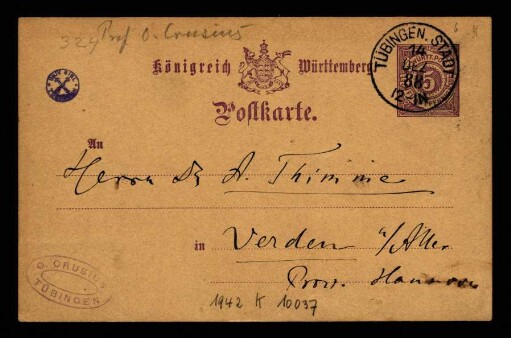 324 Prof O. Crusius
Königreich Württemberg
Postkarte.
TÜBINGEN. STADT
14
88
12-1N
5
An
Herrn Dr A. Thimme
in Verden a/Aller
Prov. Hannover
O. CRUSIUS
TÜBINGEN
1942 K 10037